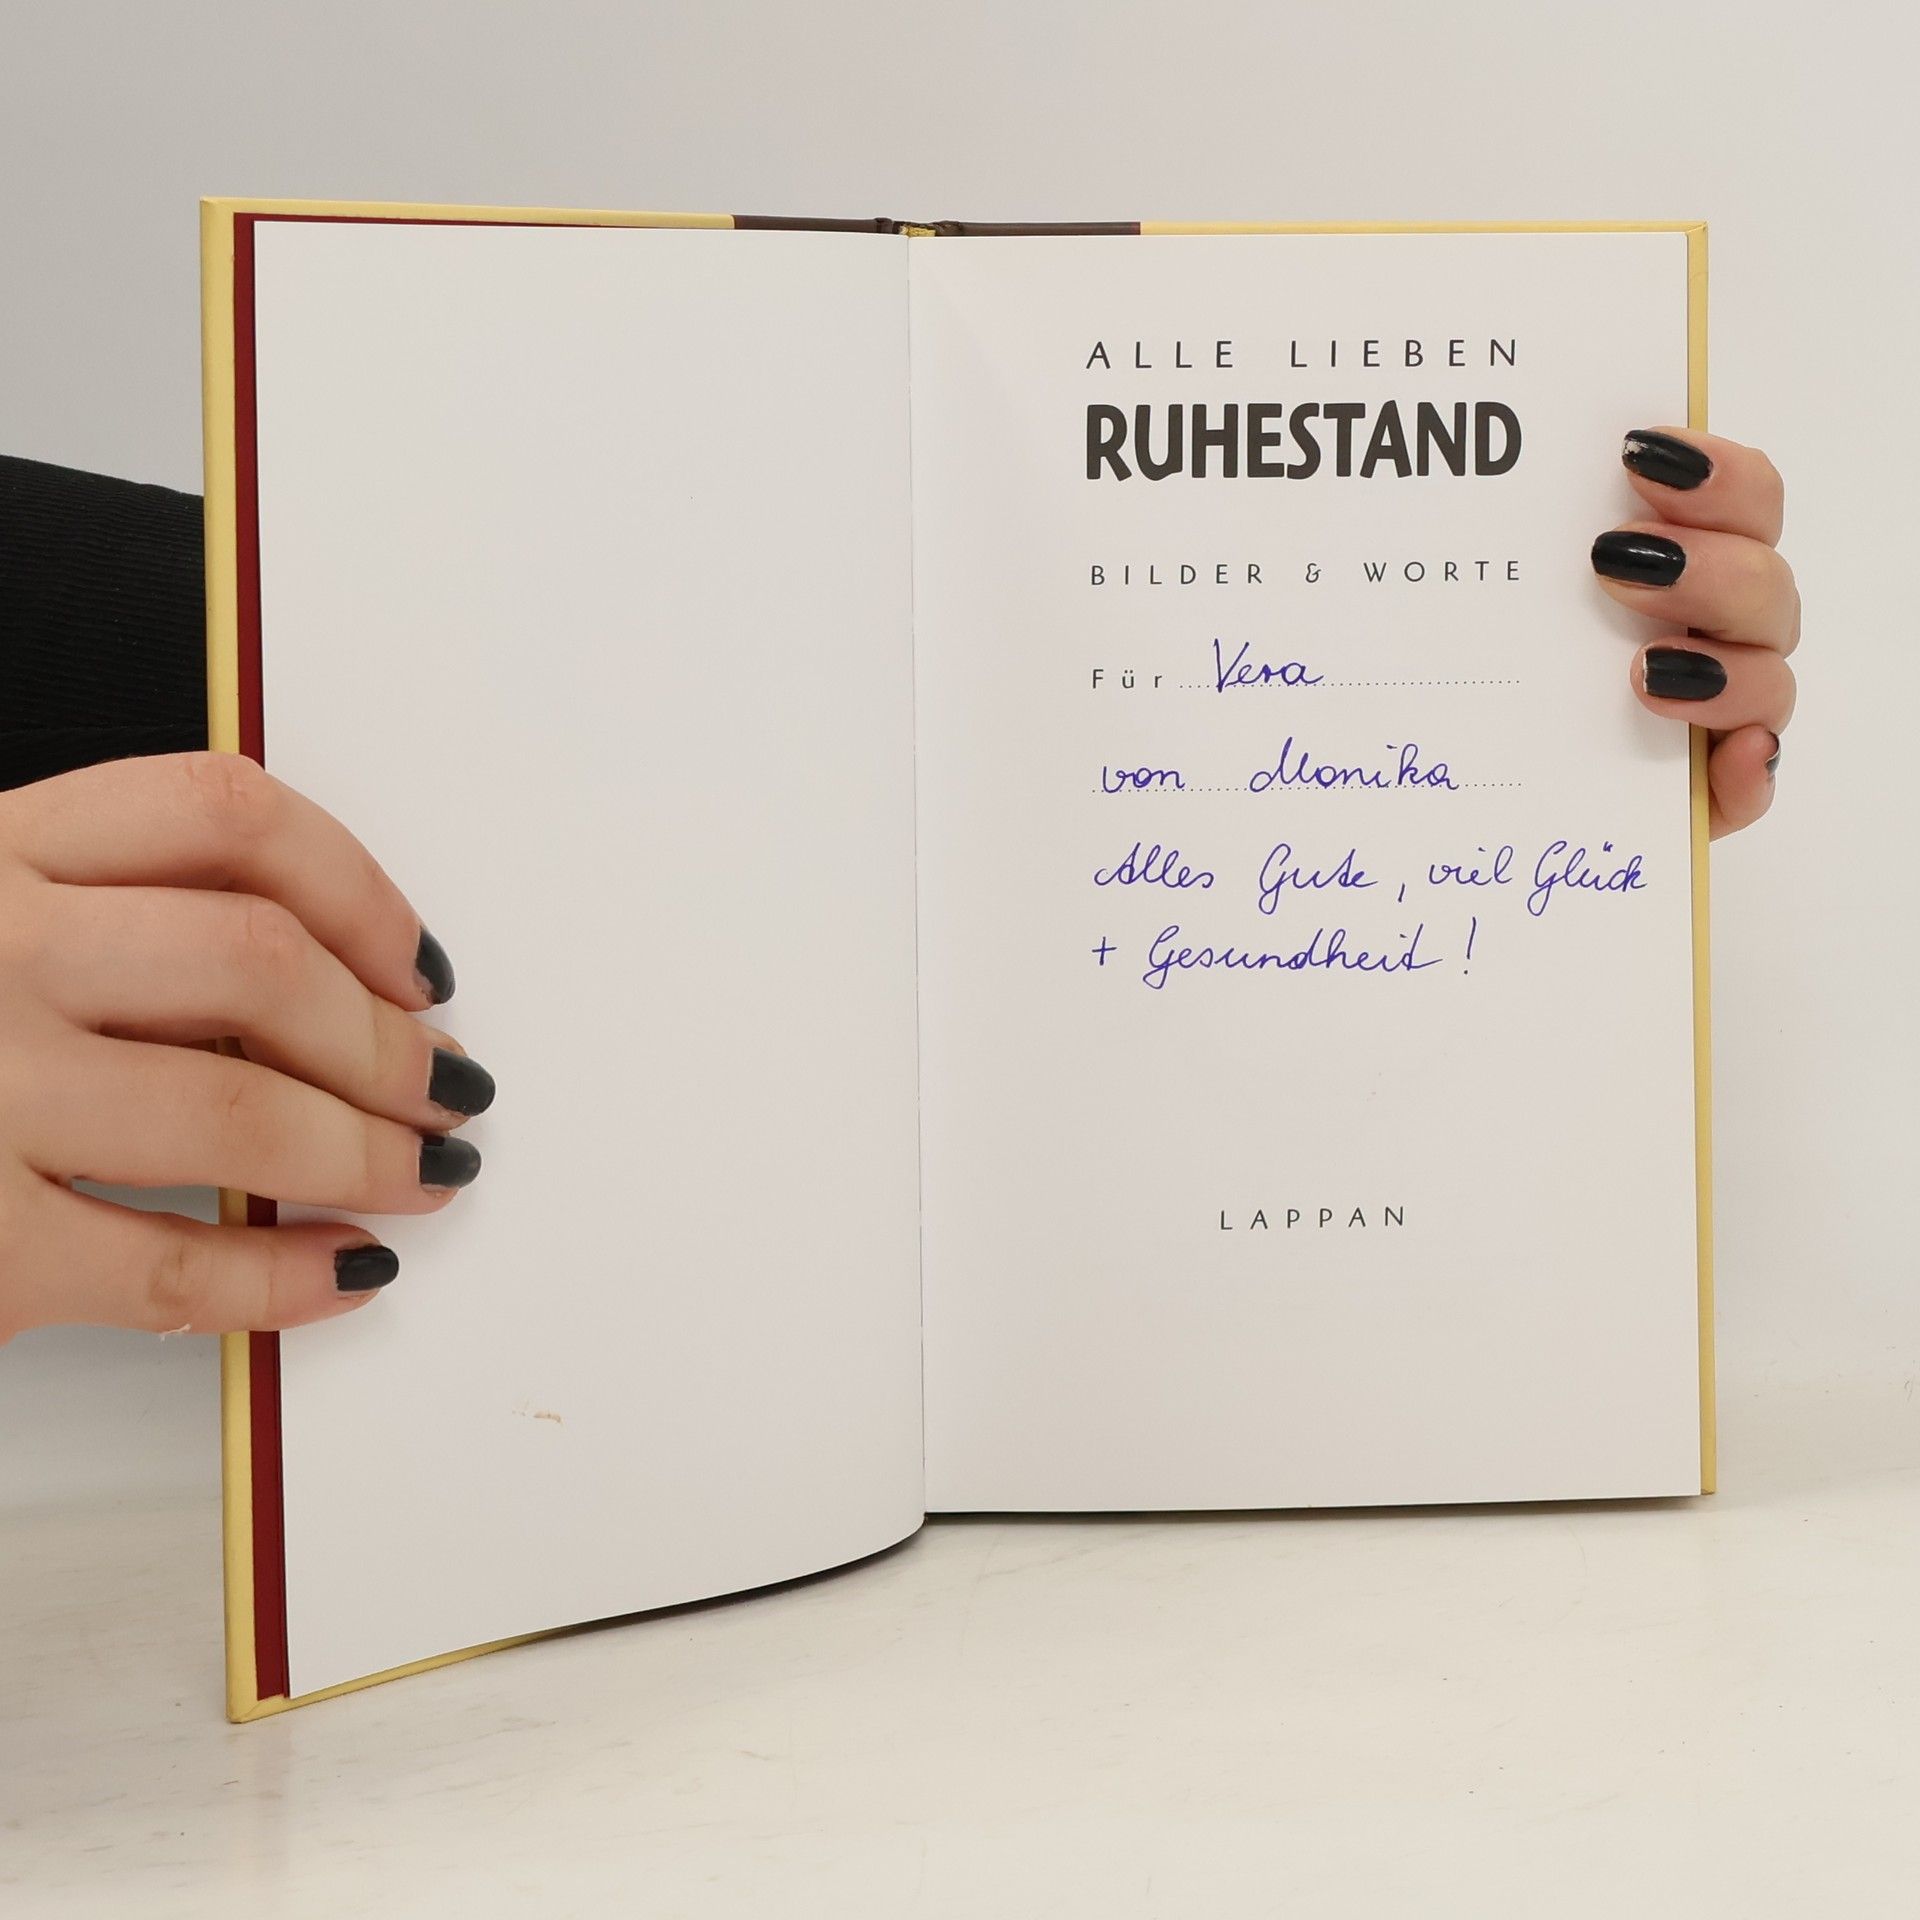 ALLE LIEBEN
RUHESTAND
BILDER & WORTE
Für Vera
von Monika
Alles Gute, viel Glück
+ Gesundheit!
LAPPAN